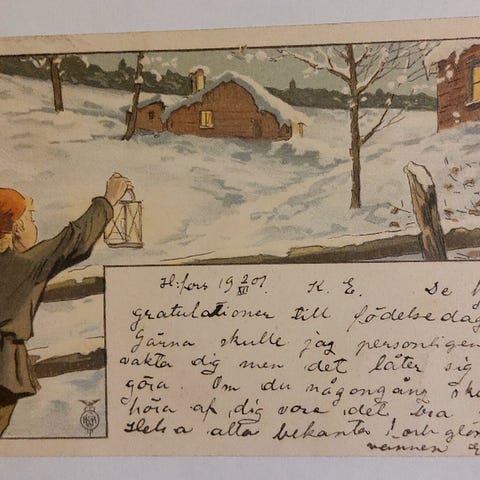 H:fors 19 2/XI 01. K. E. De
gratulationer till födelsedag
Gärna skulle jag personligen
vakta dig men det låter sig
göra. Om du någongång
höra af dig vore det bra
Helsa alla bekanta! och glöm
vännen E